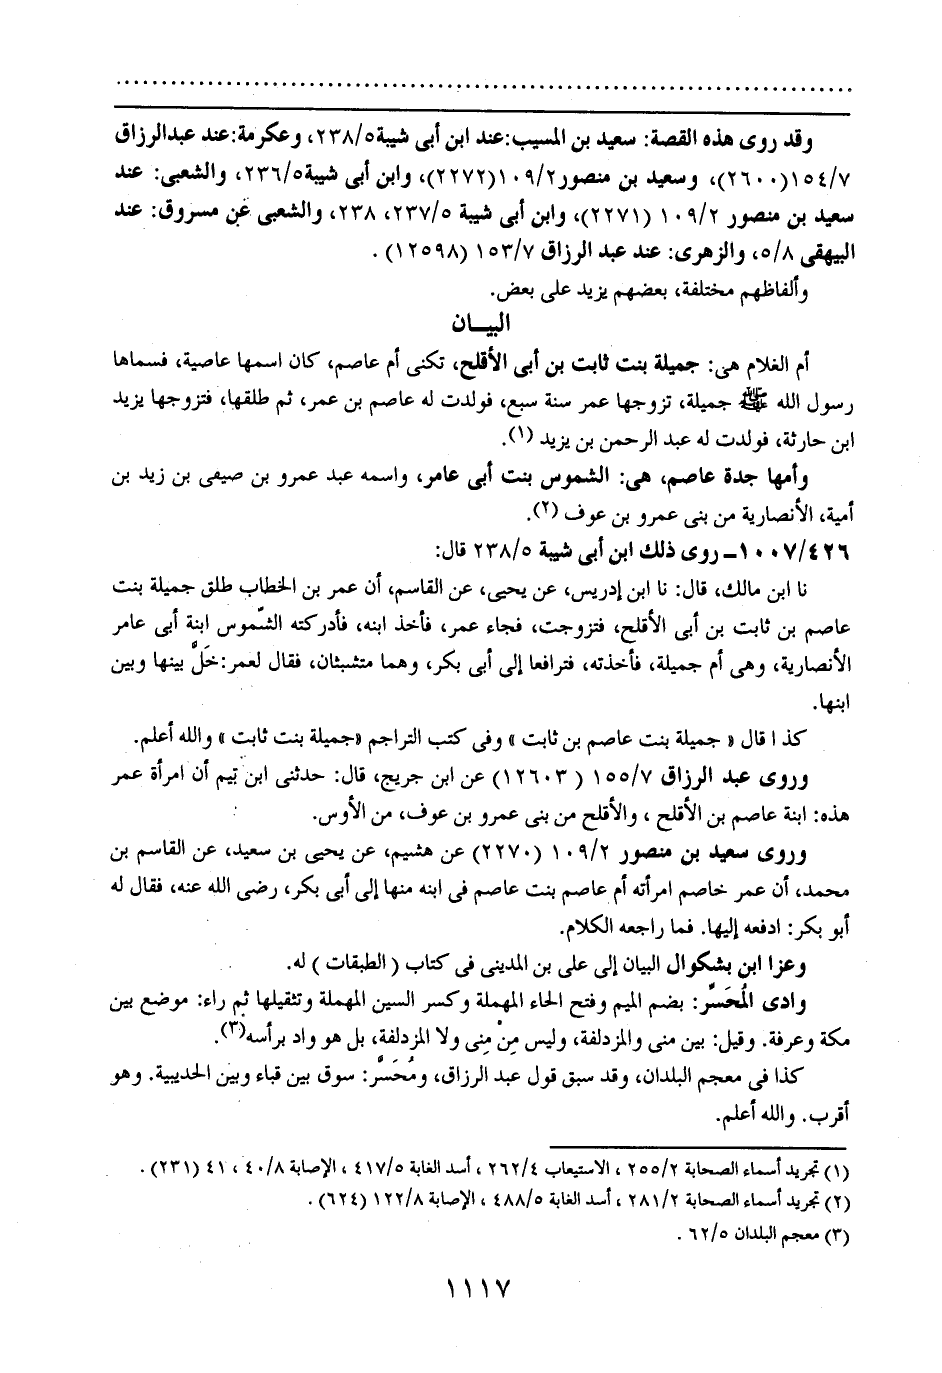 وقد روى هذه القصة: سعيد بن المسيب:عند ابن أبى شيبة٢٣٨/٥، وعكرمة:عند عبدالرزاق
١٥٤/٧(٢٦٠٠)، وسعيد بن منصور١٠٩/٢(٢٢٧٢)، وابن أبى شيبة٢٣٦/٥، والشعبى: عند
سعيد بن منصور ١٠٩/٢ (٢٢٧١)، وابن أبى شيبة ٢٣٧/٥، ٢٣٨، والشعبى عن مسروق: عند
البيهقى ٥/٨، والزهرى: عند عبد الرزاق ١٥٣/٧ (١٢٥٩٨) .
وألفاظهم مختلفة، بعضهم يزيد على بعض.
البيـــان
أم الغلام هى: جميلة بنت ثابت بن أبى الأقلح، تكنى أم عاصم، كان اسمها عاصية، فسماها
رسول الله ﷺ جميلة، تزوجها عمر سنة سبع، فولدت له عاصم بن عمر، ثم طلقها، فتزوجها يزيد
ابن حارثة، فولدت له عبد الرحمن بن يزيد (١).
وأمها جدة عاصم، هى: الشموس بنت أبى عامر، واسمه عبد عمرو بن صيفى بن زيد بن
أمية، الأنصارية من بنى عمرو بن عوف (٢).
١٠٠٧/٤٢٦ـ روى ذلك ابن أبى شيبة ٢٣٨/٥ قال:
نا ابن مالك، قال: نا ابن إدريس، عن يحيى، عن القاسم، أن عمر بن الخطاب طلق جميلة بنت
عاصم بن ثابت بن أبى الأقلح، فتزوجت، فجاء عمر، فأخذ ابنه، فأدركته الشّموس ابنة أبى عامر
الأنصارية، وهى أم جميلة، فأخذته، فترافعا إلى أبى بكر، وهما متشبثان، فقال لعمر:خَلِّ بينها وبين
ابنها.
كذ ا قال « جميلة بنت عاصم بن ثابت » وفى كتب التراجم «جميلة بنت ثابت » والله أعلم.
وروى عبد الرزاق ١٥٥/٧ (١٢٦٠٣) عن ابن جريج، قال: حدثنى ابن تيم أن امرأة عمر
هذه: ابنة عاصم بن الأقلح ، والأقلح من بنى عمرو بن عوف، من الأوس.
وروى سعيد بن منصور ١٠٩/٢ (٢٢٧٠) عن هشيم، عن يحيى بن سعيد، عن القاسم بن
محمد، أن عمر خاصم امرأته أم عاصم بنت عاصم فى ابنه منها إلى أبى بكر، رضى الله عنه، فقال له
أبو بكر: ادفعه إليها. فما راجعه الكلام.
وعزا ابن بشكوال البيان إلى على بن المدينى فى كتاب ( الطبقات ) له.
وادى المُحَسِّر: بضم الميم وفتح الحاء المهملة وكسر السين المهملة وتثقيلها ثم راء: موضع بين
مكة وعرفة. وقيل: بين منى والمزدلفة، وليس مِنْ مِنى ولا المزدلفة، بل هو واد برأسه(٣).
كذا فى معجم البلدان، وقد سبق قول عبد الرزاق، ومُحَسِّر: سوق بين قباء وبين الحديبية. وهو
أقرب. والله أعلم.
(١) تجريد أسماء الصحابة ٢٥٥/٢ ، الاستيعاب ٢٦٢/٤ ، أسد الغابة ٤١٧/٥ ، الإصابة ٤٠/٨ ، ٤١ (٢٣١) .
(٢) تجريد أسماء الصحابة ٢٨١/٢ ، أسد الغابة ٤٨٨/٥ ، الإصابة ١٢٢/٨ (٦٢٤) .
(٣) معجم البلدان ٦٢/٥ .
١١١٧